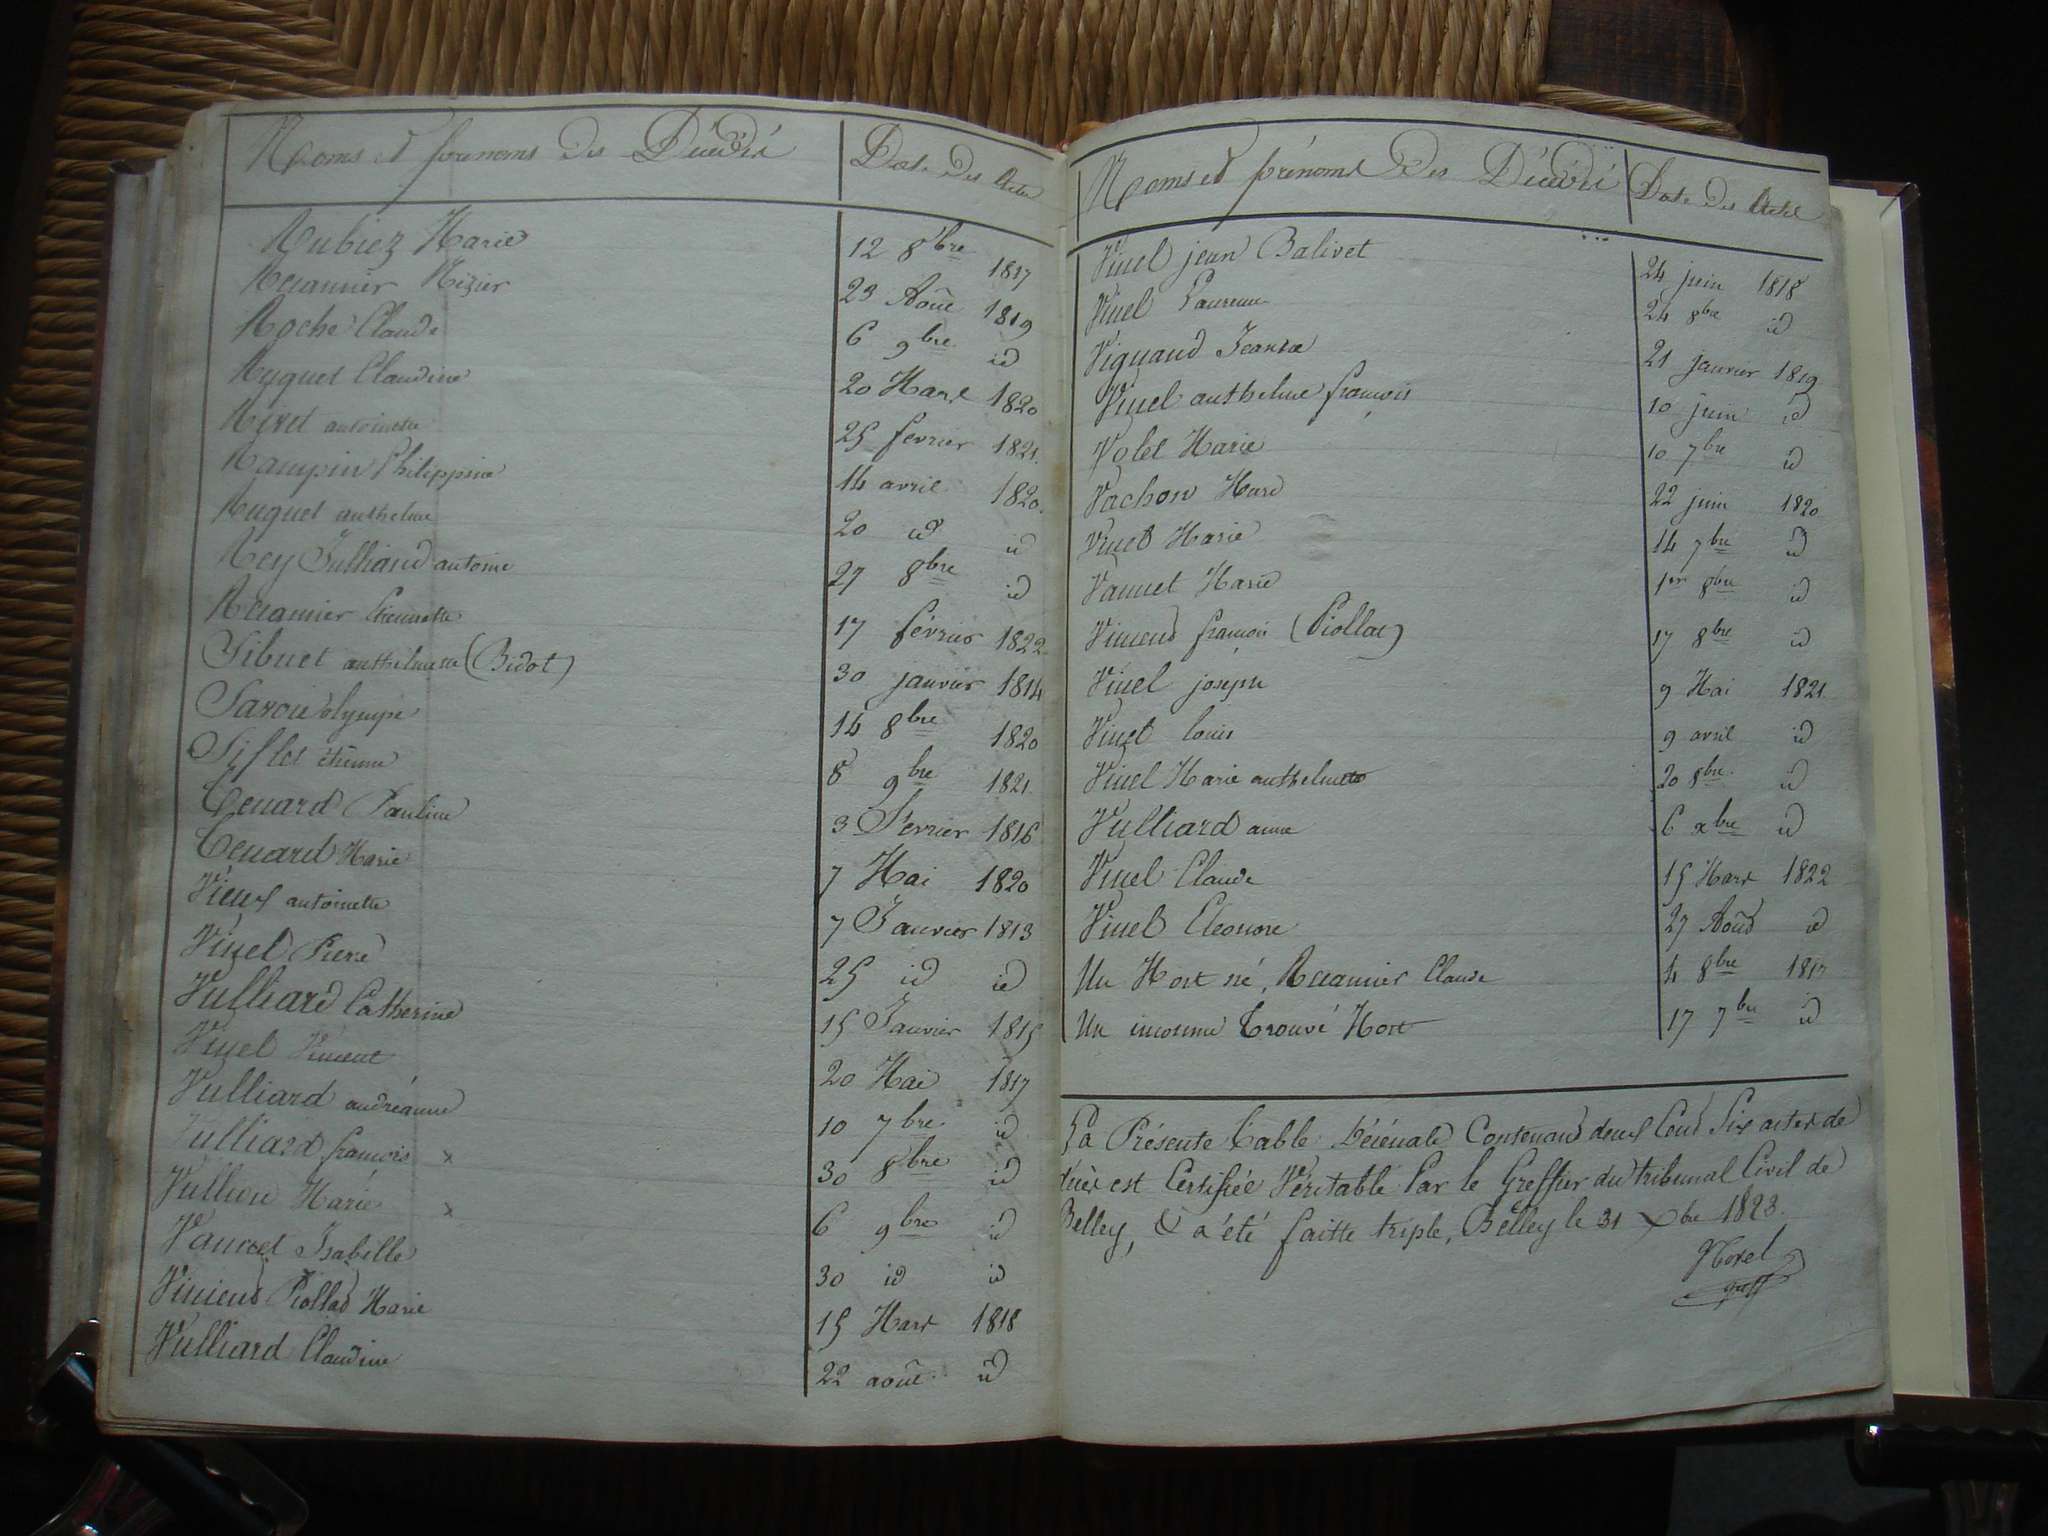 Noms et prénoms des Décédés Date des Actes
Rubiez Marie 12 8bre 1817
Récamier Nizier 23 Août 1819
Roche Claude 6 9bre id
Ruguet Claudine 20 Mars 1820
Rivet antoinette 25 fevrier 1821.
Rampin Philippine 14 avril 1820.
Ruguet anthelme 20 id id
Rey Julliand antoine 27 8bre id
Récamier Pierrette 17 février 1822
Sibuet anthelmette (Bidot) 30 janvier 1814
Savoie olympe 14 8bre 1820
Siflet étienne 8 9bre 1821
Tenard Pauline 3 Fevrier 1816
Tenard Marie 7 Mai 1820
Vieux antoinette 7 Janvier 1813
Vinel Pierre 25 id id
Vulliard Catherine 15 Janvier 1815
Vinel Vincent 20 Mai 1817
Vulliard andréanne 10 7bre id
Vulliard francois x 30 8bre id
Marie x 6 9bre id
Isabelle 30 id id
Piollad Marie 15 Mars 1818
Vulliard Claudine 22 août id
Noms et prénoms des Décédés Date des Actes
Vinel jean Balivet 24 juin 1818
Vinel Laurence 24 8bre id
Vignaud Jeanne 21 janvier 1819
Vinel anthelme françois 10 juin id
Volet Marie 10 7bre id
Vachon Marc 22 juin 1820
Vinet Marie 14 7bre id
Marie 1er 8bre id
françois (Piollat) 17 8bre id
Vinel joseph 9 Mai 1821
Vinet louis 9 avril id
Vinel Marie anthelmette 20 8bre id
Vulliard anne 6 xbre id
Vinel Claude 15 Mars 1822
Vinel Eleonore 27 Août id
Un Mort né, Récamier Claude 4 8bre 1817
Un inconnu trouvé Mort 17 7bre id
La Présente table Décénale Contenant deux Cent Six actes de
décès est Certifiée Véritable Par le Greffier du tribunal Civil de
Belley, & a été faitte triple, Belley le 31 xbre 1823.
Morel
greff